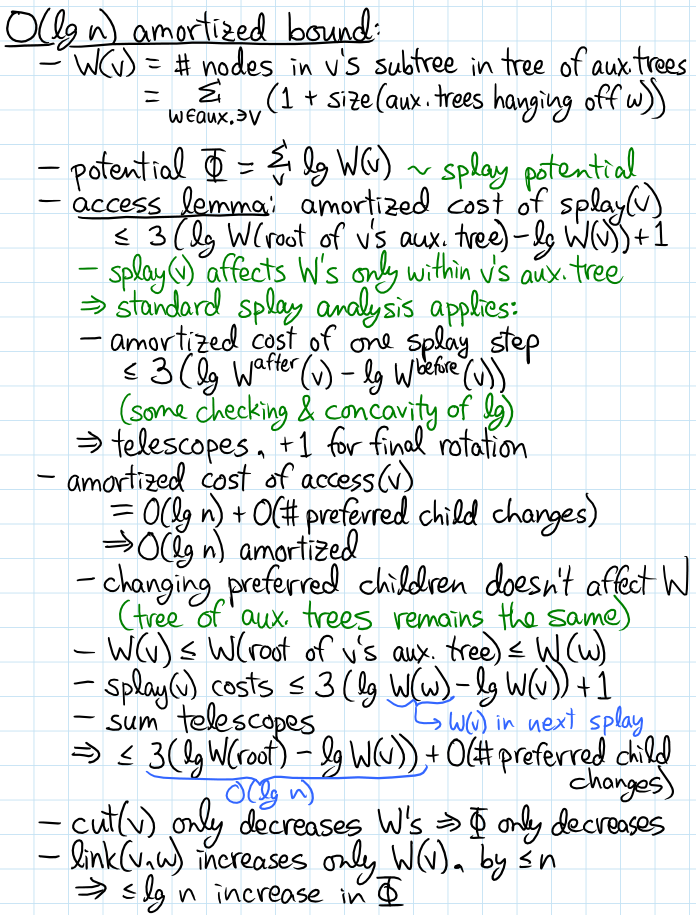 O(lg n) amortized bound:
- W(v) = # nodes in v's subtree in tree of aux. trees
= Σ (1 + size(aux. trees hanging off w))
w∈aux.∋v
- potential Φ = Σ lg W(v) ~ splay potential
v
- access lemma: amortized cost of splay(v)
≤ 3(lg W(root of v's aux. tree) - lg W(v)) + 1
- splay(v) affects W's only within v's aux. tree
⇒ standard splay analysis applies:
- amortized cost of one splay step
≤ 3(lg W^after(v) - lg W^before(v))
(some checking & concavity of lg)
⇒ telescopes, +1 for final rotation
- amortized cost of access(v)
= O(lg n) + O(# preferred child changes)
⇒ O(lg n) amortized
- changing preferred children doesn't affect W
(tree of aux. trees remains the same)
- W(v) ≤ W(root of v's aux. tree) ≤ W(w)
- splay(v) costs ≤ 3(lg W(w) - lg W(v)) + 1
- sum telescopes ↳ W(v) in next splay
⇒ ≤ 3(lg W(root) - lg W(v)) + O(# preferred child
O(lg n) changes)
- cut(v) only decreases W's ⇒ Φ only decreases
- link(v,w) increases only W(v), by ≤ n
⇒ ≤ lg n increase in Φ